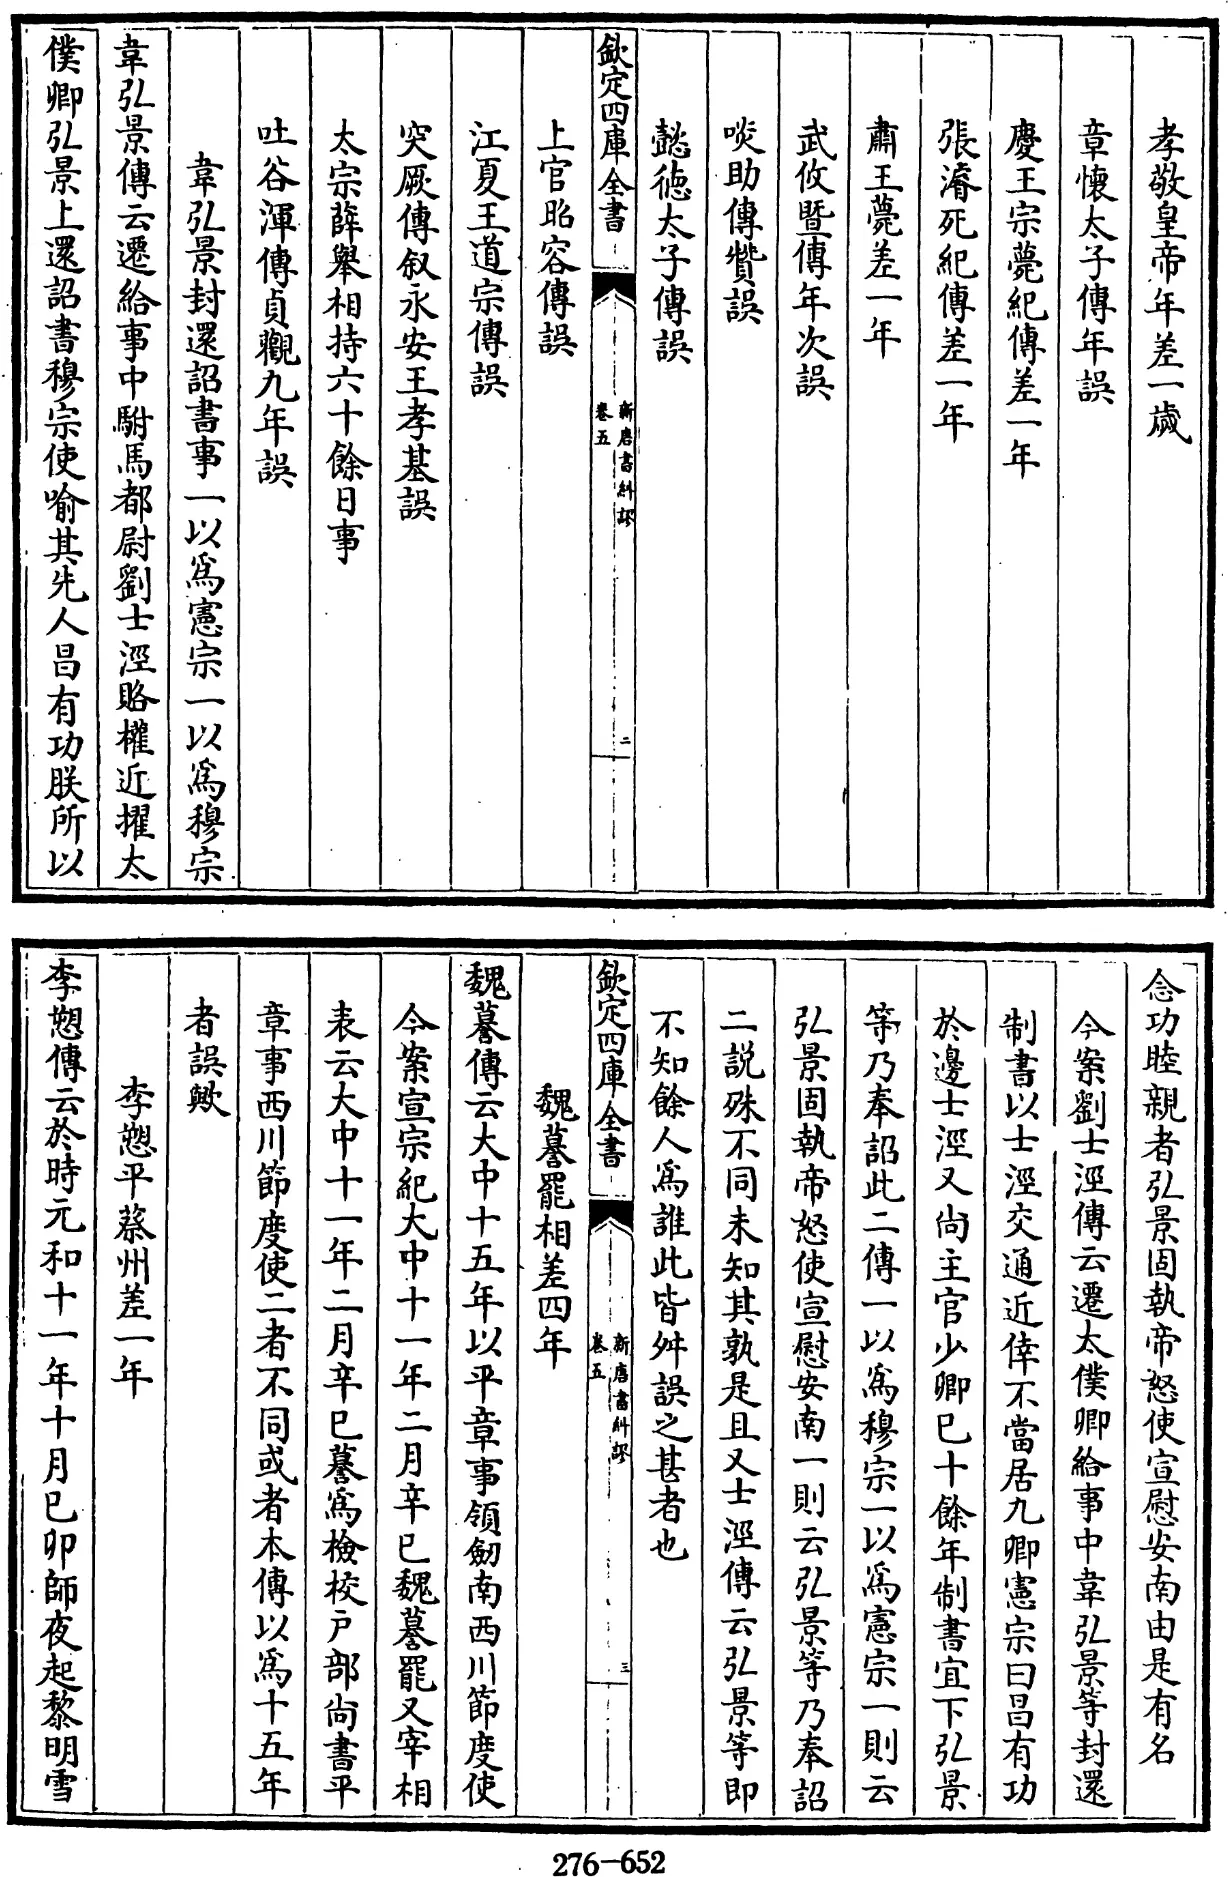 孝敬皇帝年差一歲
章懷太子傳年誤
慶王宗薨紀傳差一年
張濬死紀傳差一年
肅王薨差一年
武攸暨傳年次誤
啖助傳贊誤
懿徳太子傳誤
欽定四庫全書
新唐書糾謬
卷五
二
上官昭容傳誤
江夏王道宗傳誤
突厥傳叙永安王孝基誤
太宗薛舉相持六十餘日事
吐谷渾傳貞觀九年誤
韋弘景封還詔書事一以為憲宗一以為穆宗
韋弘景傳云遷給事中駙馬都尉劉士涇賂權近擢太
僕卿弘景上還詔書穆宗使喻其先人昌有功朕所以
念功睦親者弘景固執帝怒使宣慰安南由是有名
今案劉士涇傳云遷太僕卿給事中韋弘景等封還
制書以士涇交通近倖不當居九卿憲宗曰昌有功
於邊士涇又尚主官少卿巳十餘年制書宜下弘景
等乃奉詔此二傳一以為穆宗一以為憲宗一則云
弘景固執帝怒使宣慰安南一則云弘景等乃奉詔
二説殊不同未知其孰是且又士涇傳云弘景等即
不知餘人為誰此皆舛誤之甚者也
欽定四庫全書
新唐書糾謬
卷五
三
魏謩罷相差四年
魏謩傳云大中十五年以平章事領劒南西川節度使
今案宣宗紀大中十一年二月辛巳魏謩罷又宰相
表云大中十一年二月辛巳謩為檢校户部尚書平
章事西川節度使二者不同或者本傳以為十五年
者誤歟
李愬平蔡州差一年
李愬傳云於時元和十一年十月巳卯師夜起黎明雪
276-652